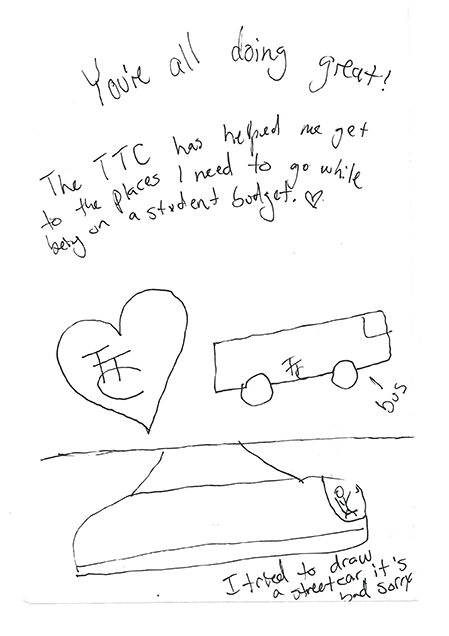 You're all doing great!
The TTC has helped me get
to the places I need to go while
being on a student budget. ♡
TTC
TTC
bus
I tried to draw
a streetcar, it's
bad sorry